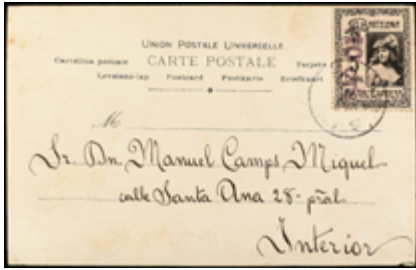 UNION POSTALE UNIVERSELLE
Cartolina postale CARTE POSTALE Tarjeta
Levelezö-lap Postcard Postkarte Briefkaart
M
Sr. Dn. Manuel Camps Miquel
calle Santa Ana 28-pral.
Interior